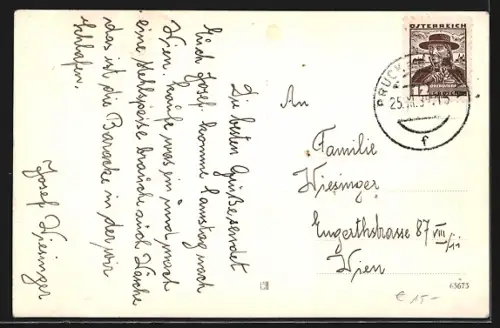 Die besten Grüße sendet
Euch Josef. komme Samstag nach
Wien. kaufe was ein und mach
eine Mehlspeise brauch auch Wäsche
das ist die Baracke in der wir
schlafen.
Josef Wiesinger
An
Familie
Wiesinger
Engerthstrasse 87 VIII/11
Wien
ÖSTERREICH
12
BRUCK
25.XI.3
f
63673
€ 15-